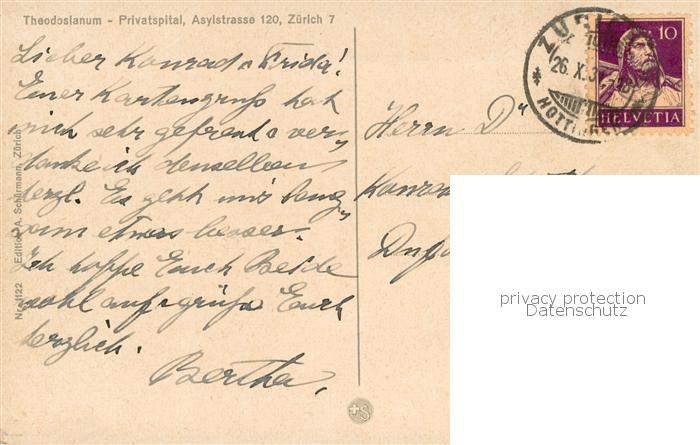 Theodosianum - Privatspital, Asylstrasse 120, Zürich 7
Lieber Konrad u Frida!
Euer Kartengruss hat
mich sehr gefreut u ver-
danke ich denselben
herzl. Es geht mir lang-
sam etwas besser.
Ich hoffe Euch Beide
wohl auf u grüsse Euch
herzlich.
Bertha.
Nr. 1122 Edition A. Schürmann, Zürich
Herrn Dr
Konrad
10
HELVETIA
26. X. 3
HOTTINGEN
privacy protection
Datenschutz